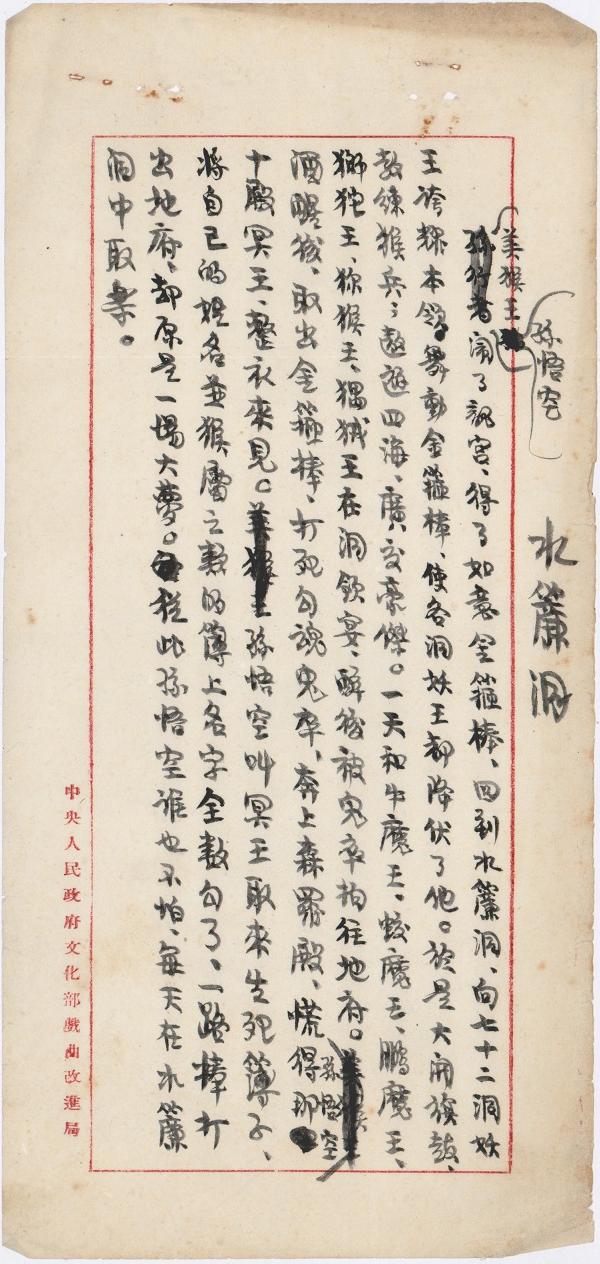 水簾洞
孫悟空
美猴王
鬧了龍宮、得了如意金箍棒、回到水簾洞、向七十二洞妖
王誇耀本領。舞動金箍棒、使各洞妖王都降伏了他。於是大開旗鼓、
教練猴兵；遨遊四海、廣交豪傑。一天和牛魔王、蛟魔王、鵬魔王、
獅狔王、猕猴王、𤟹狨王在洞飲宴、醉後被鬼卒拘往地府。孫悟空
酒醒後、取出金箍棒、打死勾魂鬼卒、奔上森羅殿、慌得那
十殿冥王、整衣來見。孫悟空叫冥王取來生死簿子、
將自己的姓名並猴屬之類的簿上名字全數勾了、一路棒打
出地府、却原是一場大夢。從此孫悟空誰也不怕、每天在水簾
洞中取樂。
中央人民政府文化部戲曲改進局